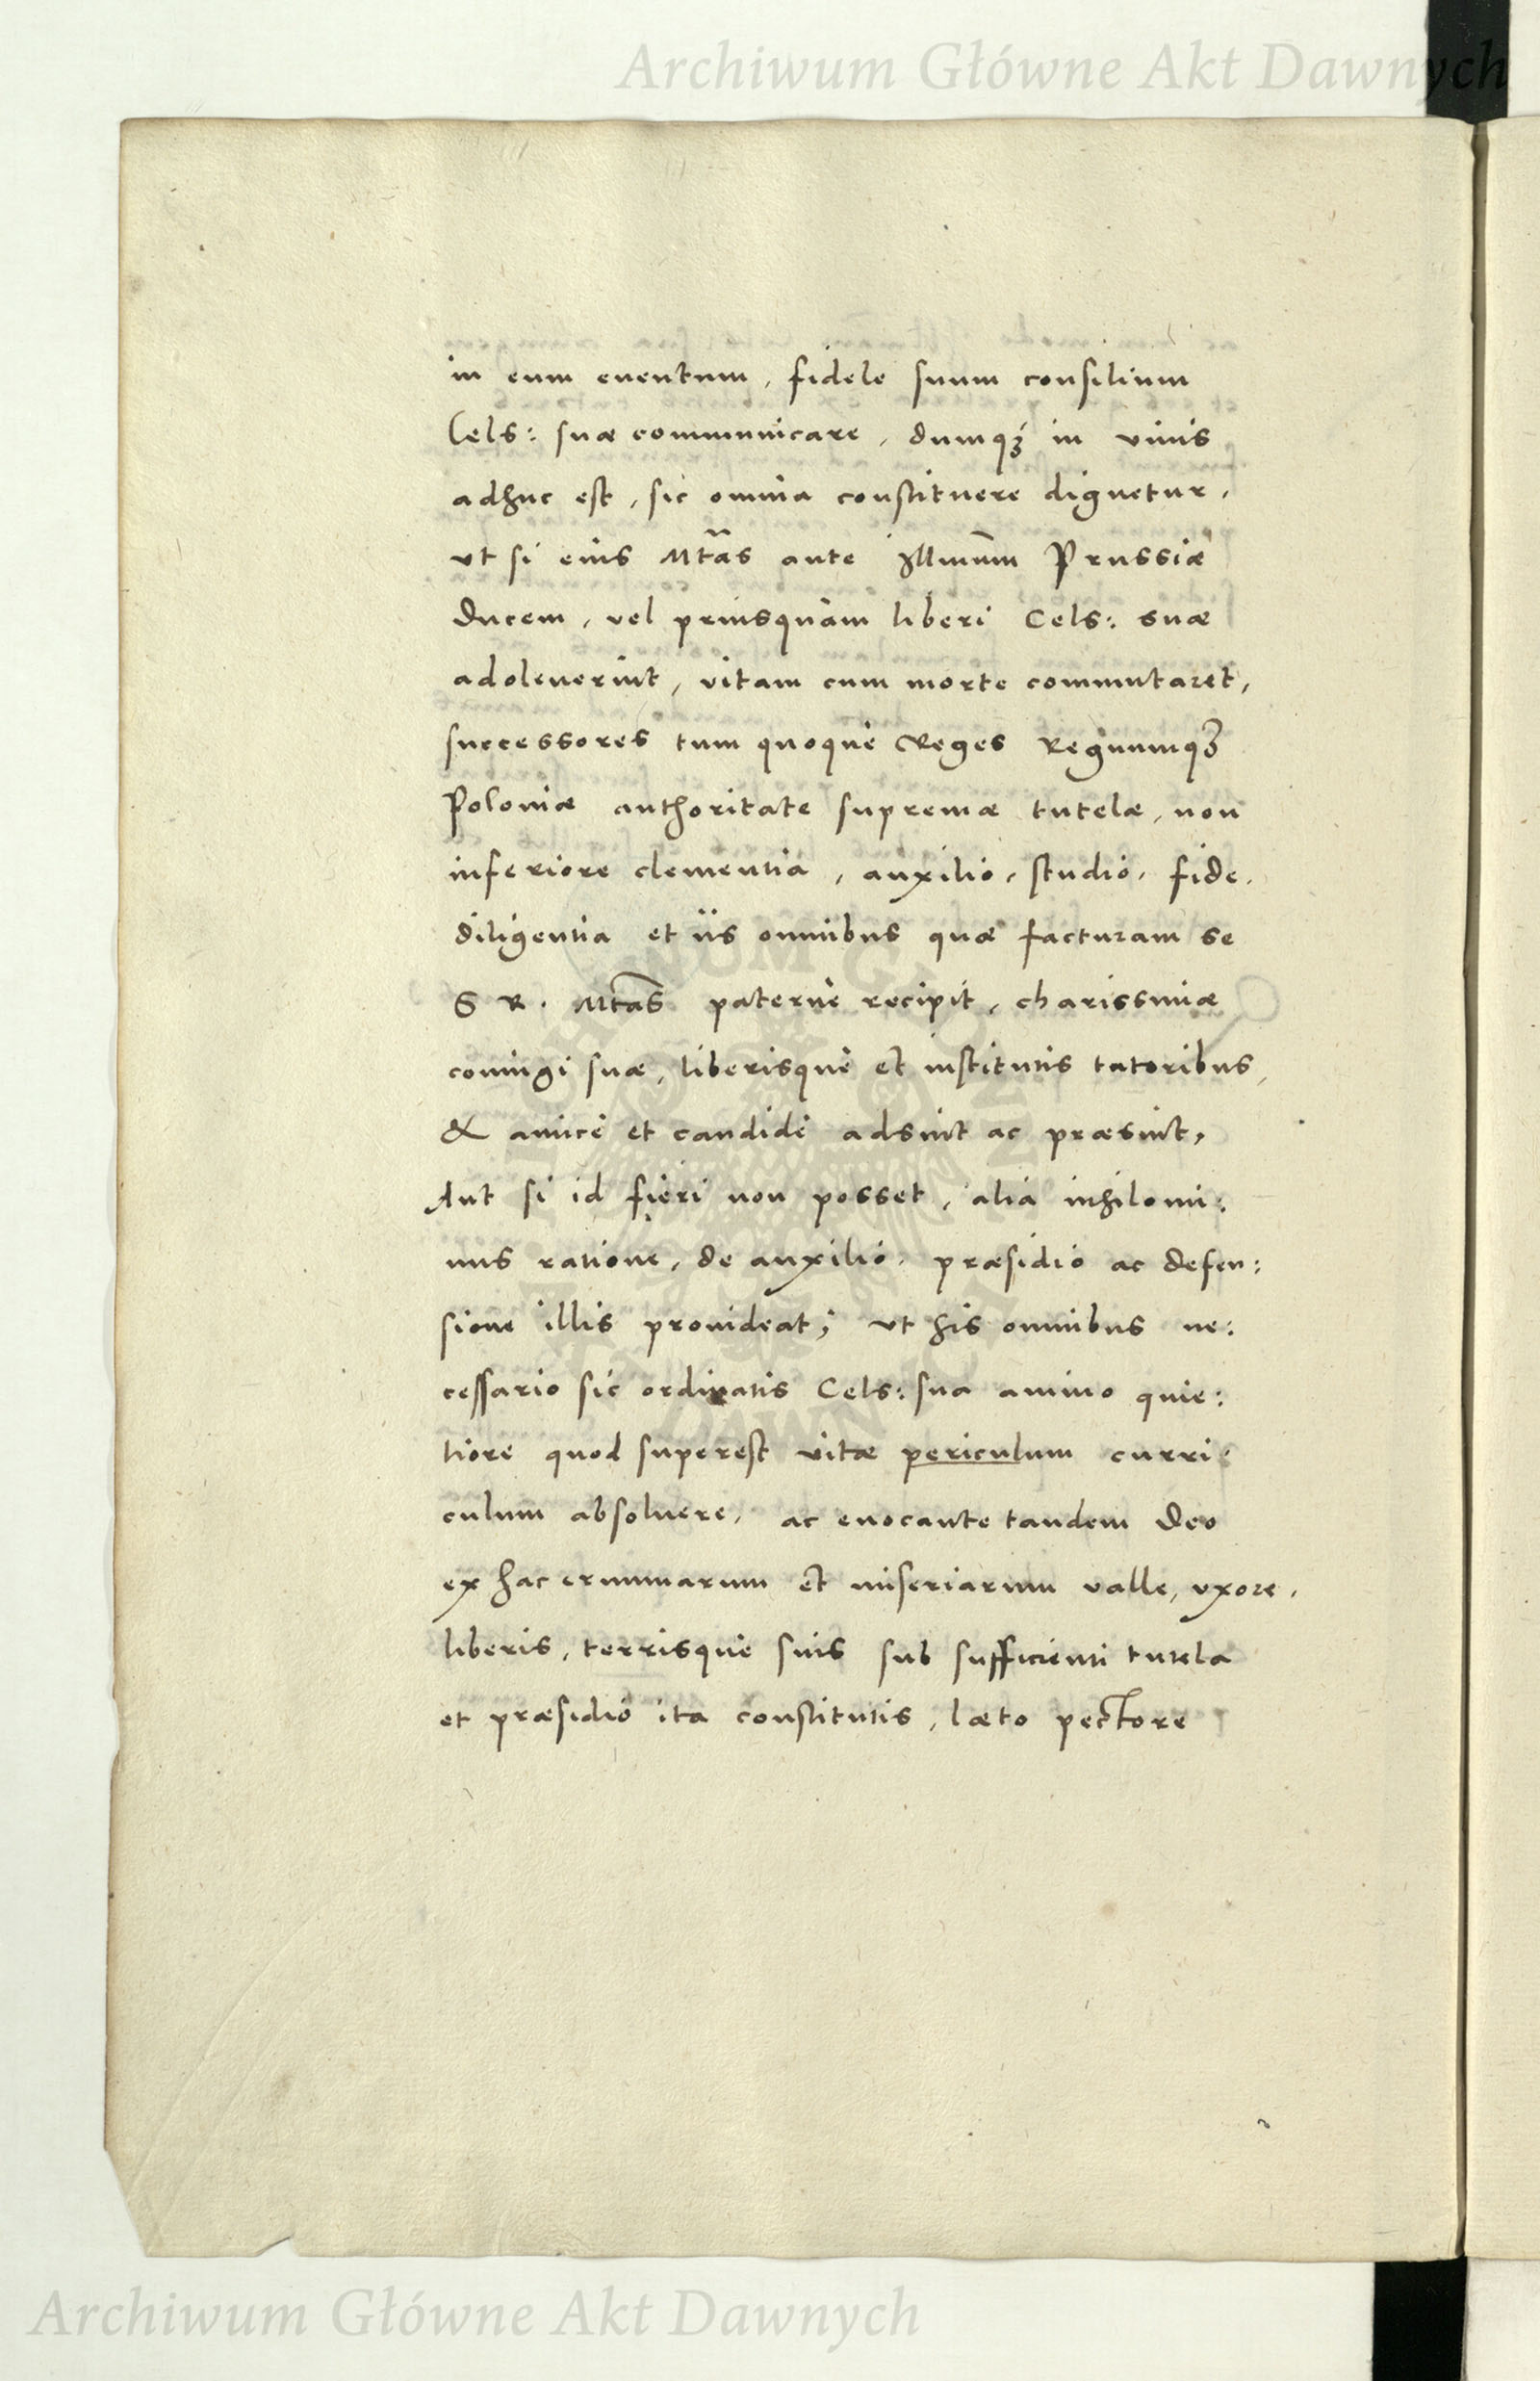 Archiwum Główne Akt Dawnych
in eum euentum, fidele suum consilium
Cels: suæ communicare, dumq₃ in viuis
adhuc est, sic omnia constituere dignetur,
vt si eius Mtas ante Illmum Prussiæ
Ducem, vel priusquam liberi Cels: suæ
adoleuerint, vitam cum morte commutaret,
successores tum quoque Reges Regnumq₃
Poloniæ authoritate supremæ tutelæ, non
inferiore clementia, auxilio, studio, fide,
diligentia et iis omnibus quæ facturam se
S R. Mtas paterne recipit, charissimæ
coniugi suæ, liberisque et institutis tutoribus,
& amice et candide adsint ac præsint,
Aut si id fieri non posset, alia nihilomi:
nus ratione, de auxilio, præsidio ac defen:
sione illis prouideat; vt his omnibus ne:
cessario sic ordinatis Cels: sua animo quie:
tiore quod superest vitæ periculum curri:
culum absoluere, ac euocante tandem Deo
ex hac erumnarum et miseriarum valle, vxore,
liberis, terrisque suis sub sufficienti tutela
et præsidio ita constitutis, læto pectore
Archiwum Główne Akt Dawnych